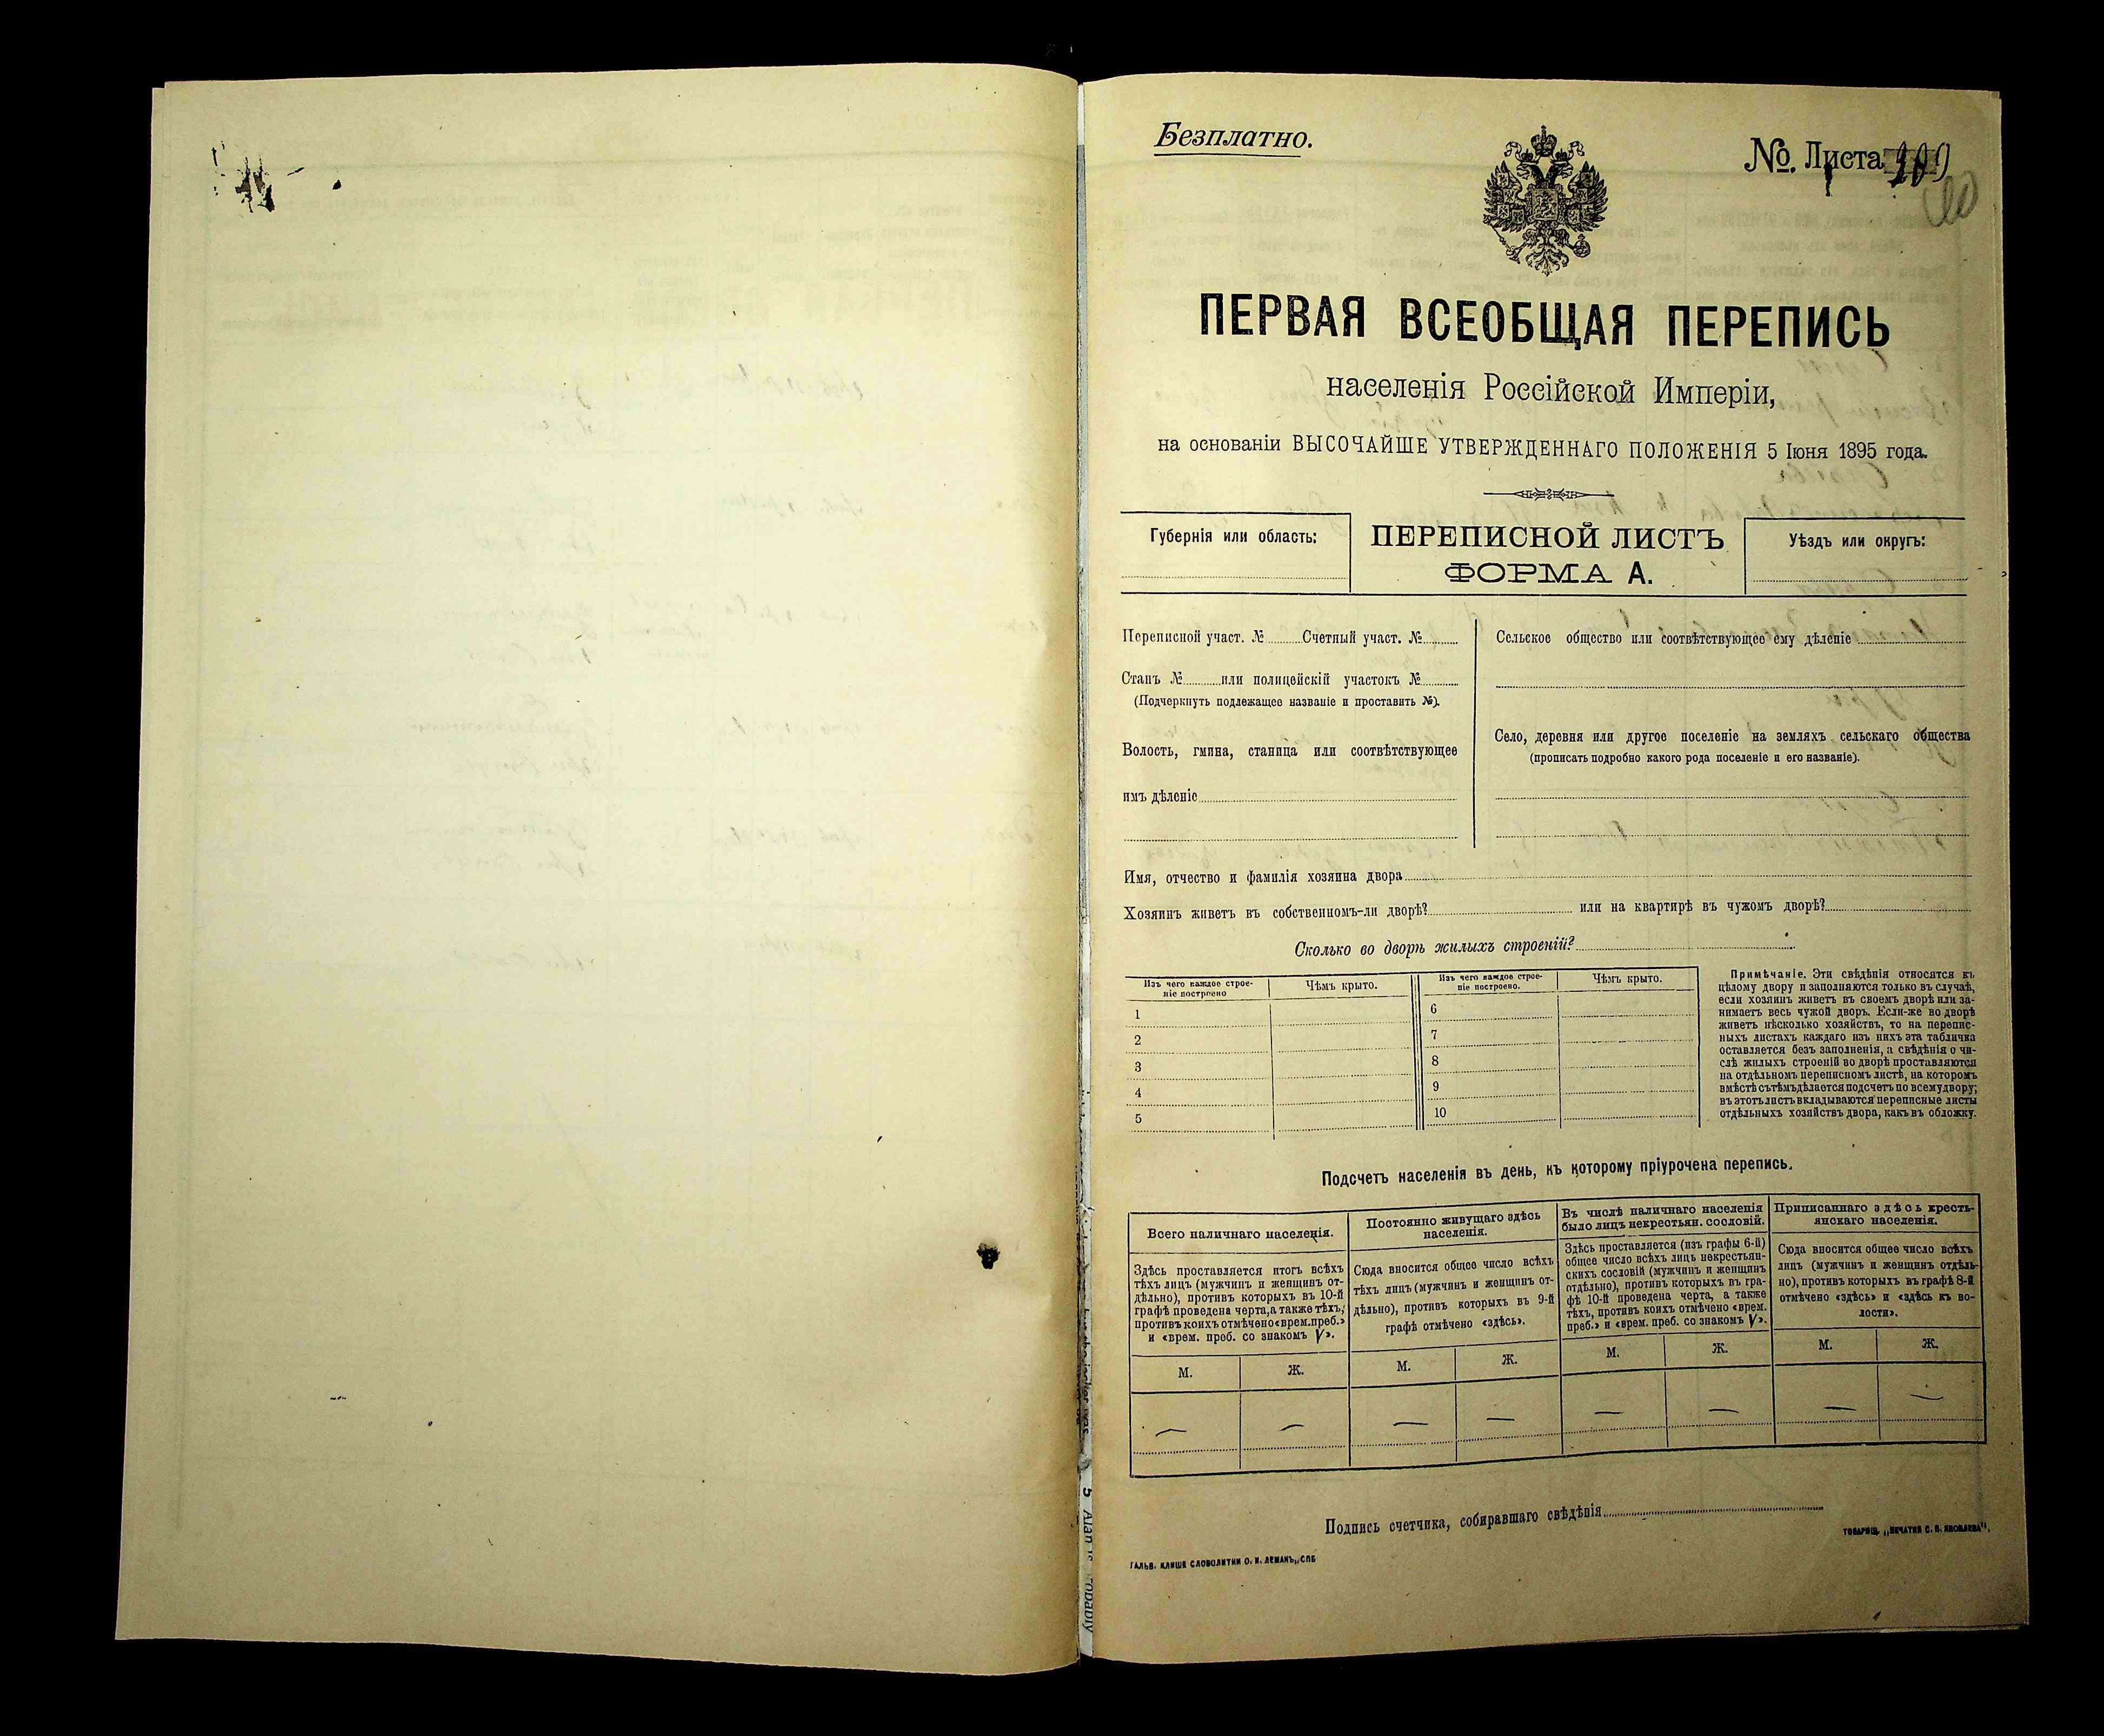 Безплатно.
№. Листа
ПЕРВАЯ ВСЕОБЩАЯ ПЕРЕПИСЬ
населенія Россійской Имперіи,
на основаніи ВЫСОЧАЙШЕ УТВЕРЖДЕННАГО ПОЛОЖЕНІЯ 5 Іюня 1895 года.
Губернія или область:
ПЕРЕПИСНОЙ ЛИСТЪ
ФОРМА А.
Уѣздъ или округъ:
Переписной участ. № Счетный участ. №
Станъ № или полицейскій участокъ №
(Подчеркнуть подлежащее названіе и проставить №).
Волость, гмина, станица или соотвѣтствующее
имъ дѣленіе
Сельское общество или соотвѣтствующее ему дѣленіе
Село, деревня или другое поселеніе на земляхъ сельскаго общества
(прописать подробно какого рода поселеніе и его названіе).
Имя, отчество и фамилія хозяина двора
Хозяинъ живетъ въ собственномъ-ли дворѣ? или на квартирѣ въ чужомъ дворѣ?
Сколько во дворѣ жилыхъ строеній?
Изъ чего каждое строе-
ніе построено
Чѣмъ крыто.
Изъ чего каждое строе-
ніе построено.
Чѣмъ крыто.
1
2
3
4
5
6
7
8
9
10
Примѣчаніе. Эти свѣдѣнія относятся къ
цѣлому двору и заполняются только въ случаѣ,
если хозяинъ живетъ въ своемъ дворѣ или за-
нимаетъ весь чужой дворъ. Если-же во дворѣ
живетъ нѣсколько хозяйствъ, то на перепис-
ныхъ листахъ каждаго изъ нихъ эта табличка
оставляется безъ заполненія, а свѣдѣнія о чи-
слѣ жилыхъ строеній во дворѣ проставляются
на отдѣльномъ переписномъ листѣ, на которомъ
вмѣстѣ съ тѣмъ дѣлается подсчетъ по всему двору;
въ этотъ листъ вкладываются переписные листы
отдѣльныхъ хозяйствъ двора, какъ въ обложку.
Подсчетъ населенія въ день, къ которому пріурочена перепись.
Всего наличнаго населенія.
Здѣсь проставляется итогъ всѣхъ
тѣхъ лицъ (мужчинъ и женщинъ от-
дѣльно), противъ которыхъ въ 10-й
графѣ проведена черта, а также тѣхъ,
противъ коихъ отмѣчено «врем. преб.»
и «врем. преб. со знакомъ V».
М.
Ж.
Постоянно живущаго здѣсь
населенія.
Сюда вносится общее число всѣхъ
тѣхъ лицъ (мужчинъ и женщинъ от-
дѣльно), противъ которыхъ въ 9-й
графѣ отмѣчено «здѣсь».
М.
Ж.
Въ числѣ наличнаго населенія
было лицъ некрестьян. сословій.
Здѣсь проставляется (изъ графы 6-й)
общее число всѣхъ лицъ некрестьян-
скихъ сословій (мужчинъ и женщинъ
отдѣльно), противъ которыхъ въ гра-
фѣ 10-й проведена черта, а также
тѣхъ, противъ коихъ отмѣчено «врем.
преб.» и «врем. преб. со знакомъ V».
М.
Ж.
Приписаннаго здѣсь кресть-
янскаго населенія.
Сюда вносится общее число всѣхъ
лицъ (мужчинъ и женщинъ отдѣль-
но), противъ которыхъ въ графѣ 8-й
отмѣчено «здѣсь» и «здѣсь къ во-
лости».
М.
Ж.
Подпись счетчика, собиравшаго свѣдѣнія
ГАЛЬВ. КЛИШЕ СЛОВОЛИТНИ О. И. ЛЕМАНЪ, СПБ
ТОВАРИЩ. „ПЕЧАТНЯ С. П. ЯКОВЛЕВА“.